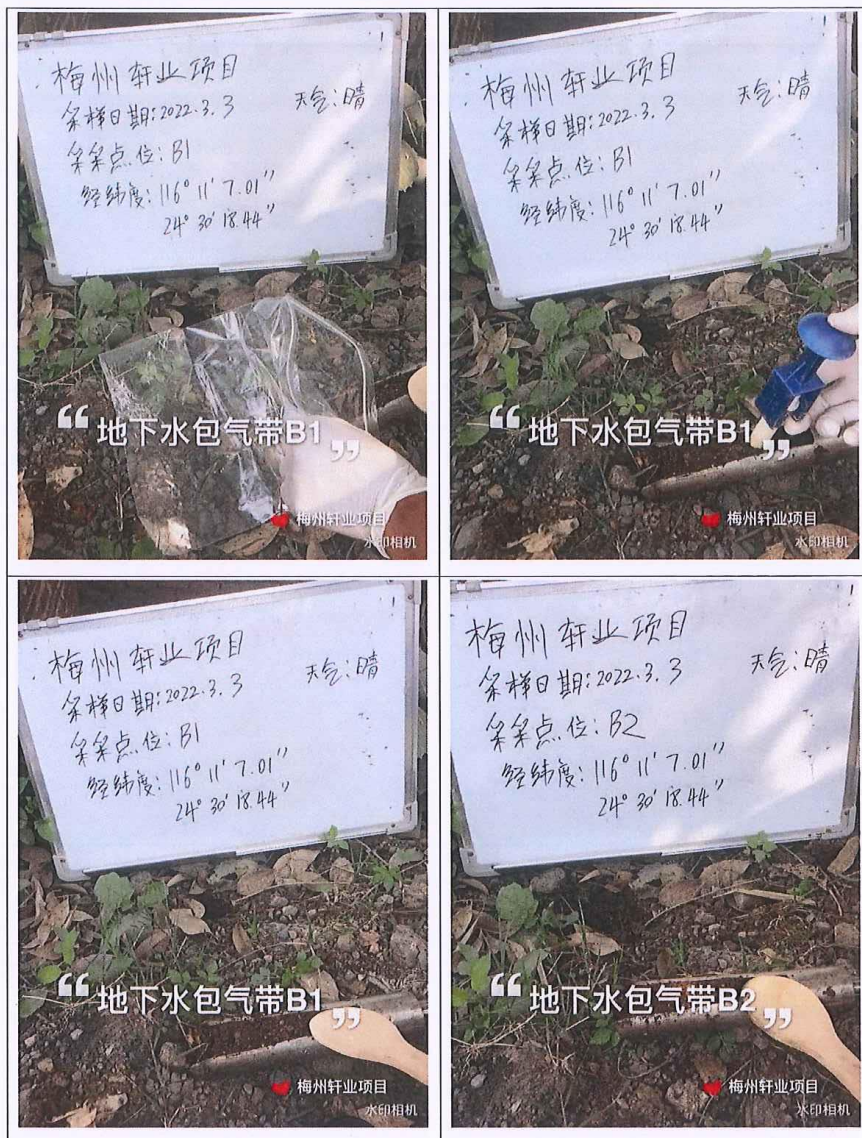 梅州轩业项目
采样日期:2022.3.3 天气:晴
采采点位:B1
经纬度:116° 11' 7.01''
24° 30' 18.44''
“地下水包气带B1”
梅州轩业项目
水印相机
梅州轩业项目
采样日期:2022.3.3 天气:晴
采采点位:B1
经纬度:116° 11' 7.01''
24° 30' 18.44''
“地下水包气带B1”
梅州轩业项目
水印相机
梅州轩业项目
采样日期:2022.3.3 天气:晴
采采点位:B1
经纬度:116° 11' 7.01''
24° 30' 18.44''
“地下水包气带B1”
梅州轩业项目
水印相机
梅州轩业项目
采样日期:2022.3.3 天气:晴
采采点位:B2
经纬度:116° 11' 7.01''
24° 30' 18.44''
“地下水包气带B2”
梅州轩业项目
水印相机